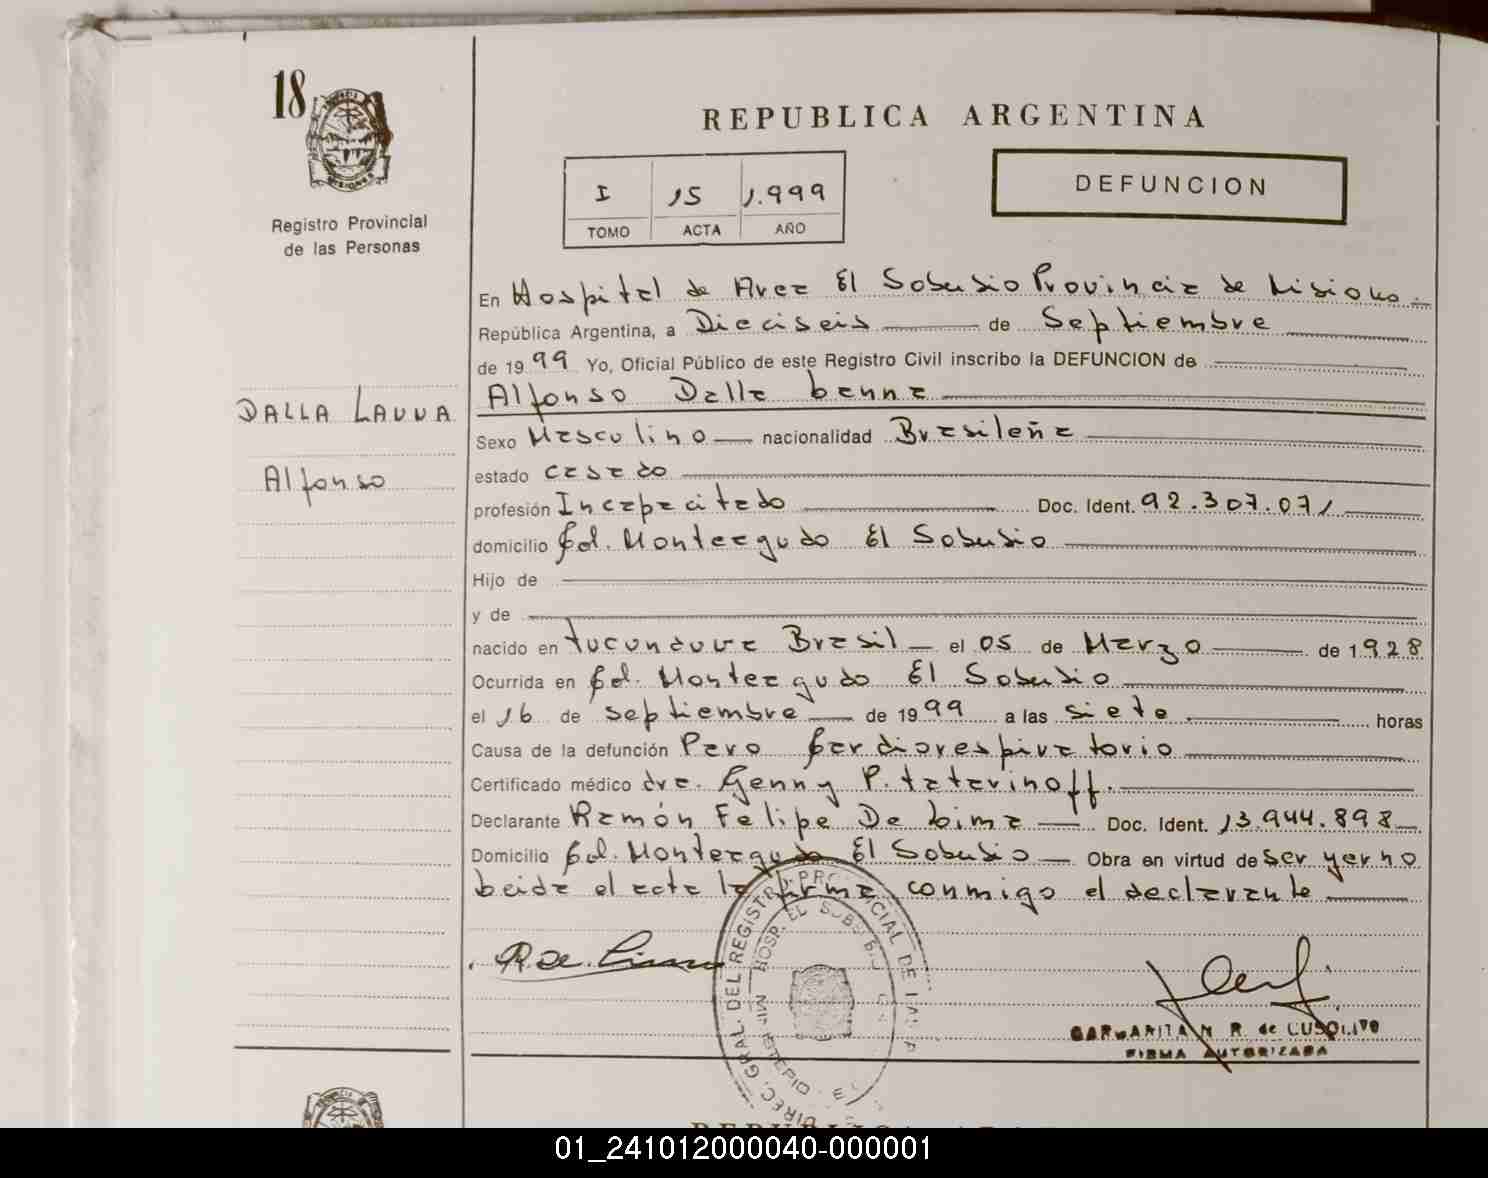 18
REPUBLICA ARGENTINA
I 15 1.999
TOMO ACTA AÑO
DEFUNCION
Registro Provincial
de las Personas
En Hospital de Area El Soberbio Provincia de Misiones
República Argentina, a Dieciseis de Septiembre
de 1999 Yo, Oficial Público de este Registro Civil inscribo la DEFUNCION de
DALLA LANNA
Alfonso
Alfonso Dalla Lanna
Sexo Masculino nacionalidad Brasileña
estado casado
profesión Incapacitado Doc. Ident. 92.307.071
domicilio Col. Monteagudo El Soberbio
Hijo de
y de
nacido en Brasil el 05 de Marzo de 1.928
Ocurrida en Col. Monteagudo El Soberbio
el 16 de septiembre de 1999 a las siete horas
Causa de la defunción Paro Cardiorespiratorio
Certificado médico dra. Genny P. tatarinoff.
Declarante Ramón Felipe De Lima Doc. Ident. 13.944.898
Domicilio Col. Monteagudo El Soberbio Obra en virtud de ser yerno
Leida el acta la firma conmigo el declarante
R. de Lima
DIREC. GRAL. DEL REGISTRO PROVINCIAL DE LAS
HOSP. EL SOBERBIO
MARGARITA N. R. de
FIRMA AUTORIZADA
01_241012000040-000001